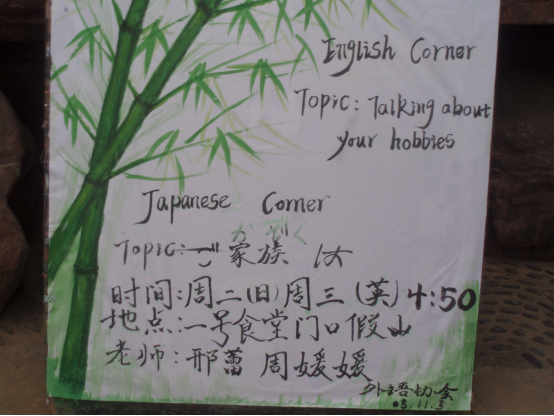 English Corner
Topic: Talking about
your hobbies
Japanese Corner
かぞく
Topic: ご家族 は
时间:周二(日)周三(英)4:50
地点:一号食堂门口假山
老师:邢蕾 周媛媛
外语协会
08.11.3